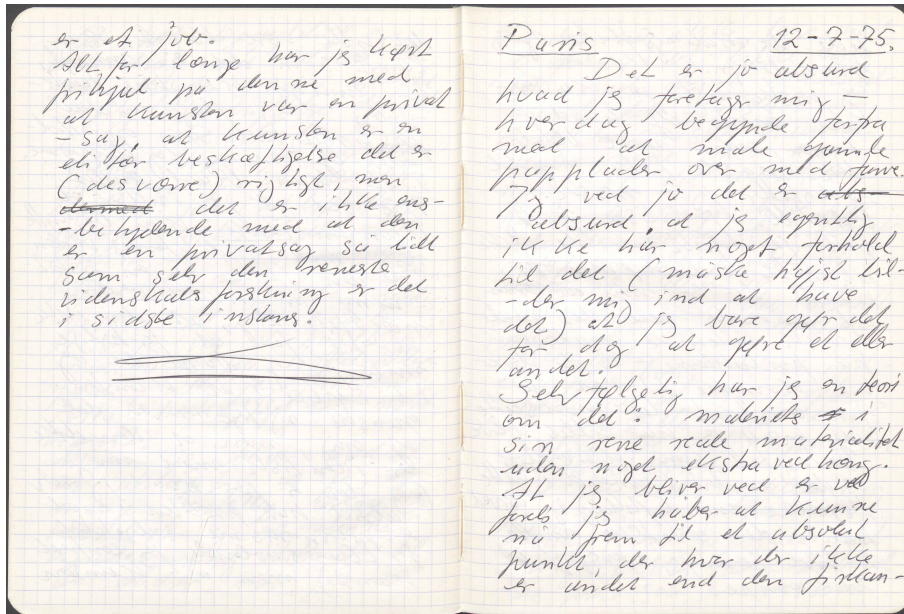 er et job.
Alt for længe har jeg kørt
frihjul på denne med
at kunsten var en privat
-sag, at kunsten er en
elitær beskæftigelse det er
(desværre) rigtigt, men
dermed det er ikke ens-
-betydende med at den
er en privatsag så lidt
som selv den reneste
videnskabs forskning er det
i sidste instans.
Paris 12-7-75.
Det er jo absurd
hvad jeg foretager mig —
hver dag begynde forfra
med at male
papplader over med farve.
Jeg ved jo det er abs-
absurd, at jeg egentlig
ikke har noget forhold
til det (måske højst bil-
-der mig ind at have
det) at jeg bare gør det
for dog at gøre et eller
andet.
Selvfølgelig har jeg en teori
om det: materiets i
sin rene reale materialitet
uden noget ekstra vedhæng.
At jeg bliver ved er
fordi jeg håber at kunne
nå frem til et absolut
punkt, der hvor der ikke
er andet end den firkan-